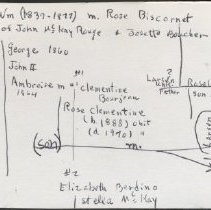 Wm (1837-1877) m. Rose Biscornet
of John McKay Rouge & Josette Boucher
George 1860
John II
Ambroise m #1 Clementine
1864 Bourgeau
Rose Clementine
(b 1888) obit
(d 1970) "
(son) m.
#2
Elizabeth Berdino
Stella McKay
?
Father
son